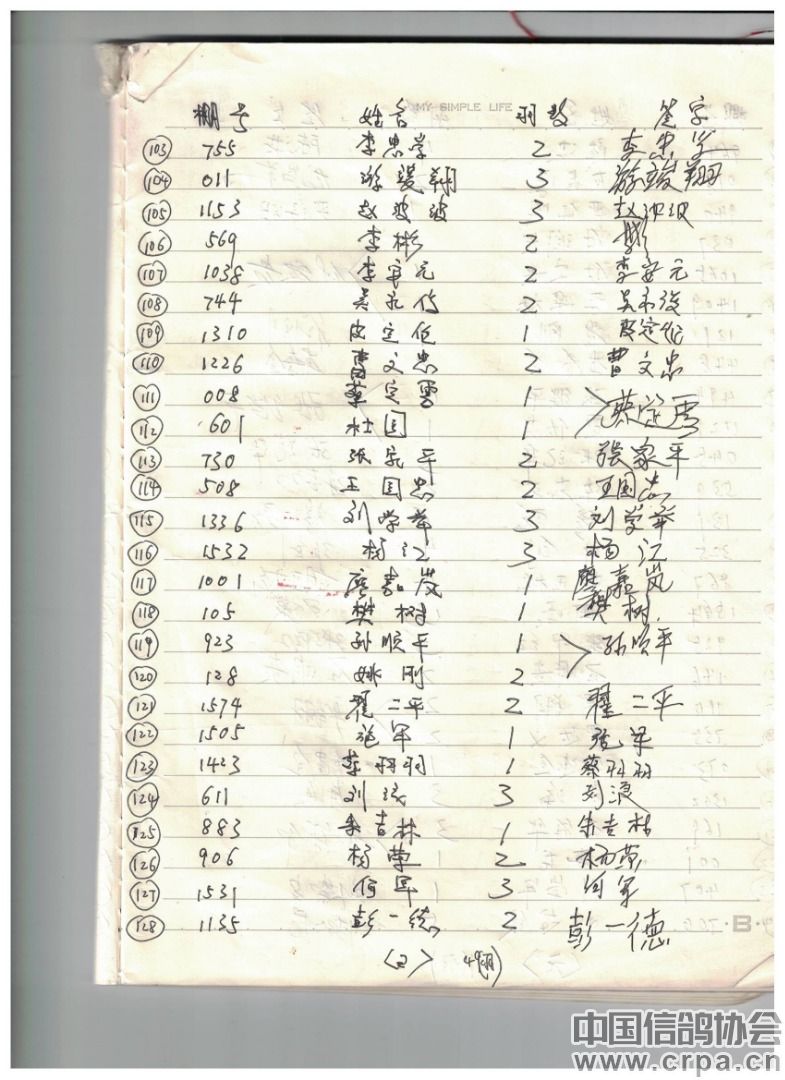 MY SIMPLE LIFE
棚号 姓名 羽数 签字
103 755 李忠学 2 李忠学
104 011 游骏翔 3 游骏翔
105 1153 赵波波 3 赵波波
106 569 李彬 2 彬
107 1038 李安元 2 李安元
108 744 吴永俊 2 吴永俊
109 1310 皮定伦 1
110 1226 曹文忠 2 曹文忠
111 008 蔡定秀 1 蔡定秀
112 601 杜国 1
113 730 张家平 2 张家平
114 508 王国忠 2 王国忠
115 1336 刘学华 3 刘学华
116 1532 杨江 3 杨江
117 1001 廖嘉岚 1 廖嘉岚
118 105 樊树 1 樊树
119 923 孙顺平 1 孙顺平
120 128 姚刚 2
121 1574 翟二平 2 翟二平
122 1505 军 1 军
123 1423 蔡羽羽 1 蔡羽羽
124 611 刘浪 3 刘浪
125 883 朱吉林 1 朱吉林
126 906 杨荣 2 杨荣
127 1531 何军 3 何军
128 1135 彭一德 2 彭一德
·B·
<2> 49羽)
中国信鸽协会
www.crpa.cn